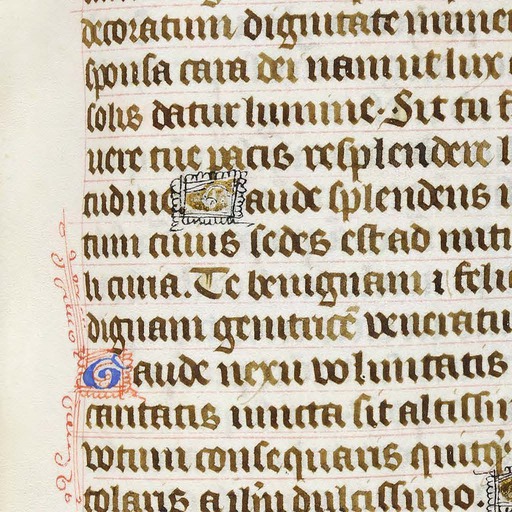 decoratum dignitate mune
sponsa cara dei nam ut lux
solis datur lumine. Sic tu f
uere tue pacis resplendere
tudine Gaude splendens
tum cuius sedes est ad nuti
li curia. Te benignam i felic
dignam genitricē veneratu
Gaude nexu voluntatis
caritatis iuncta sic altissi
votum consequaris quitq̄
tolaris a ihū dulcissimo.